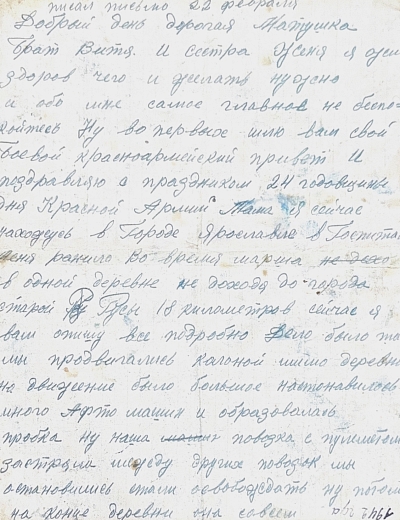 писал письмо 22 февраля
Добрый день дорогая Матушка
Брат Витя И сестра Женя я жив
здоров чего и желать нужно
и обо мне самое главное не беспо-
койтесь Ну во первых шлю вам свой
боевой красноармейский привет И
поздравляю с праздником 24 годовщины
дня Красной Армии Мама я сейчас
нахожусь в Городе Ярославле в Госпитале
меня ранило во время марша
в одной деревне не доходя до города
старой Русы 18 километров сейчас я
вам опишу все подробно Дело было так
мы продвигались колоной мимо деревни
но движение было большое
много Авто машин и образовалась
пробка ну наша повозка с пулеметом
застряла между других повозок мы
остановились стали освобождать ну потом
на конце деревни она совсем 1942 год